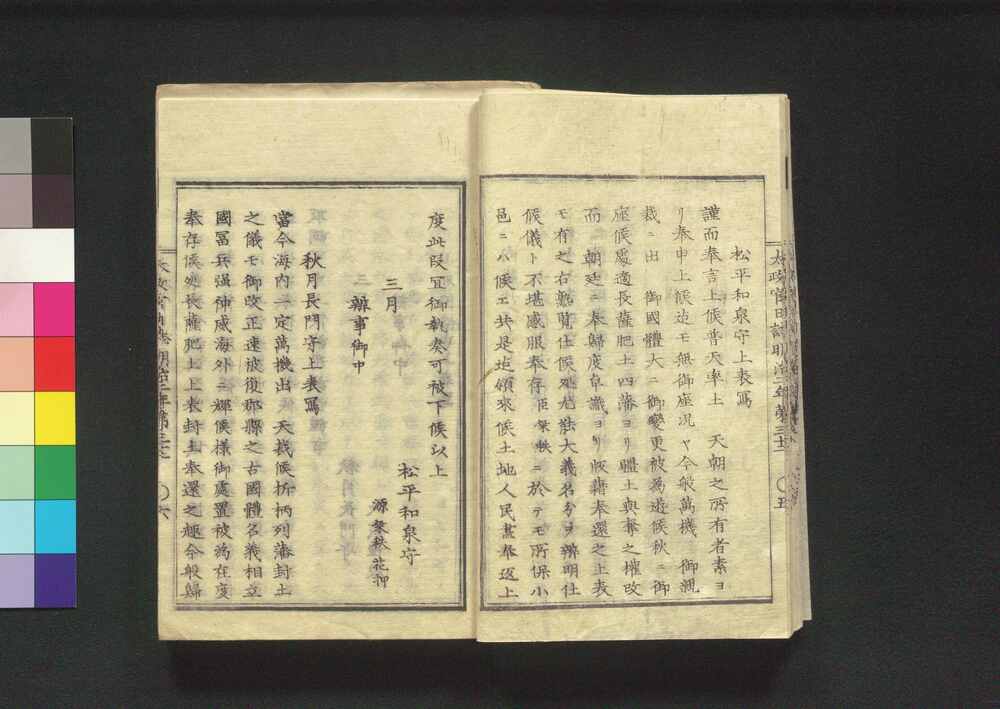 松平和泉守上表寫
謹而奉言上候普天率土　天朝之所有者素ヨ
リ奉申上候迄モ無御座況ヤ今般萬機　御親
裁ニ出　御國體大ニ御變更被為遊候秋ニ御
座候處適長薩肥土四藩ヨリ體土與奪之權改
而　朝廷ニ奉歸度卓識ヨリ版籍奉還之上表
モ有之右熟覧仕候処尤能大義名分ヲ辨明仕
候儀ト不堪感服奉存臣乗秩ニ於テモ所保小
邑ニハ候エ共是迄領來候土地人民盡奉返上
太政官日誌明治二年第三十二　〇五
度此段宜御執奏可被下候以上
松平和泉守
三月　源乗秩花押
辨事御中
秋月長門守上表寫
當今海内一定萬機出　天裁候折柄列藩封土
之儀モ御改正速被復郡縣之古國體名義相立
國富兵强神威海外ニ輝候様御處置被為在度
奉存候処長薩肥土上表封土奉還之趣今般歸